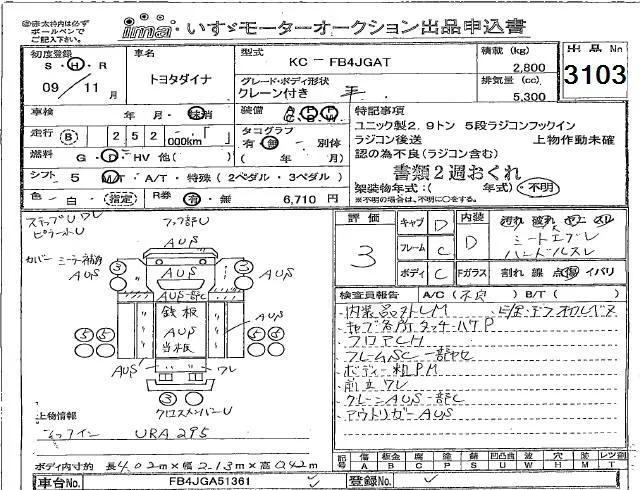 ㊟太枠内は必ず
ボールペンで
ご記入下さい。
ima いすゞモーターオークション出品申込書
初度登録
S・H・R
09/11月
車名
トヨタダイナ
型式
KC-FB4JGAT
グレード・ボディ形状
クレーン付き 平
積載 (kg)
2,800
排気量 (cc)
5,300
出品No
3103
車検 年 月・抹消
走行 B 252 000km
燃料 G・D・HV 他( )
シフト 5 MT・A/T・特殊(2ペダル・3ペダル)
色 白・指定
R券 有・無 6,710円
装備 A P P
C B W
タコグラフ
有・無・別体
( 年 月)
特記事項
ユニック製2.9トン 5段ラジコンフックイン
ラジコン後送 上物作動未確
認の為不良(ラジコン含む)
書類2週おくれ
架装物年式:( 年式)・不明
※不明の場合は、不明に○をする。
ステップU ワレ
ピラーエトU
フック部U
カバー ミラー補有
AUS
AUS
AUS
AUS
AUS一部C
鉄板
AUS
当板
AUS
AUS
AUS
ワレ
クロスメンバーU
3
3
5 5
5 5
3
上物情報
フックイン URA295
ボディ内寸約 長4.02m×幅2.13m×高0.42m
評価
3
キャブ D
フレーム C
ボディ C
内装 D
汚れ 破れ ヤニ スレ
シートエブレ
ハンドルスレ
Fガラス 割れ 線 点 傷 イバリ
検査員報告 A/C(不良) B/T( )
・内装品外しM
・キャブ各所タッチ・ハケP
・フロアCH
・フレームSC一部ヤセ
・ボディー粗PM
・前立ワレ
・クレーンAUS一部C
・アウトリガーAUS
記号 傷 A 板金 B 腐 C 塗 P 錆 S 凹凸曲 U 波 W 穴 H 外 M レツ割 T
車台No FB4JGA51361
登録No.